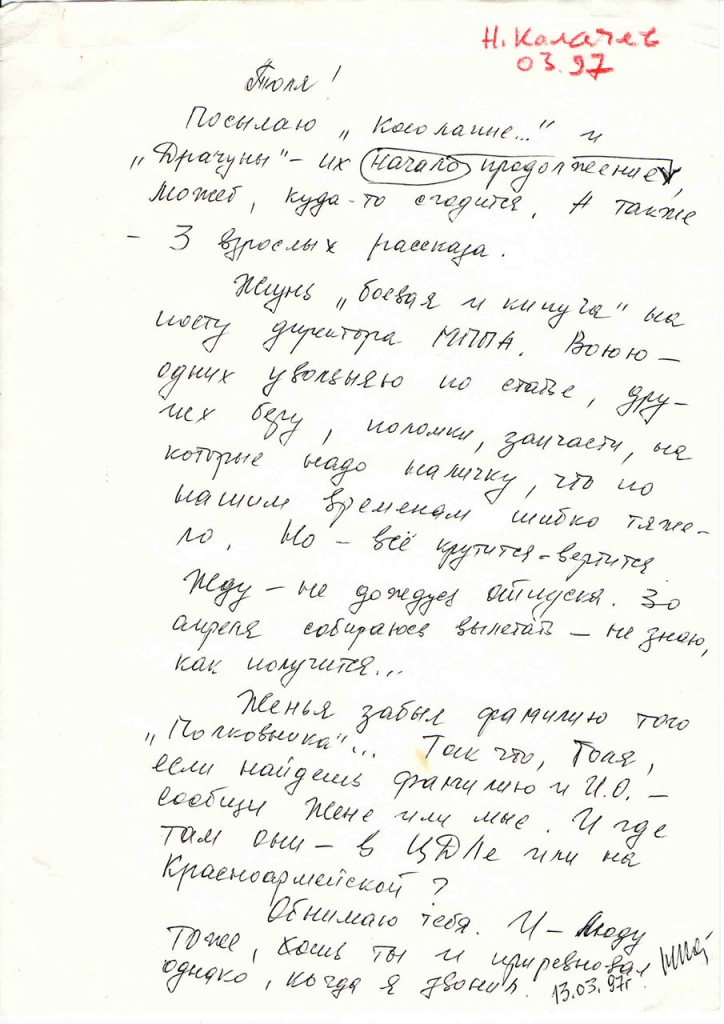 Н. Калачев
03.97
Толя!
Посылаю „Косолапие..." и
„Драчуны" – их начало продолжение,
может, куда-то сгодится. А также
– 3 взрослых рассказа.
Жизнь „боевая и кипуча" на
посту директора МППА. Воюю –
одних увольняю по статье, дру-
гих беру, поломки, запчасти, на
которые надо наличку, что по
нашим временам шибко тяже-
ло. Но – всё крутится-вертится
Жду – не дождусь отпуска. 30
апреля собираюсь вылетать – не знаю,
как получится...
Женья забыл фамилию того
„Полковника"... Так что, Толя,
если найдешь фамилию и И.О. –
сообщи Жене или мне. И где
там они – в ЦДЛе или на
Красноармейской?
Обнимаю тебя. И – Люду
тоже, хошь ты и приревновал
однако, когда я звонил.
13.03.97г.